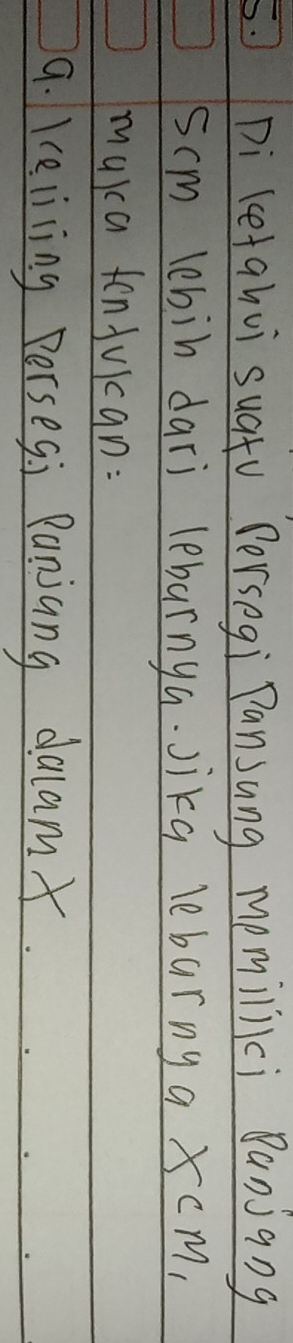 5. Di ketahui suatu Persegi Panjang memiliki Panjang
5cm lebih dari lebarnya. Jika lebarnya x cm,
maka tentukan:
a. keliling Persegi Panjang dalam x . . . .